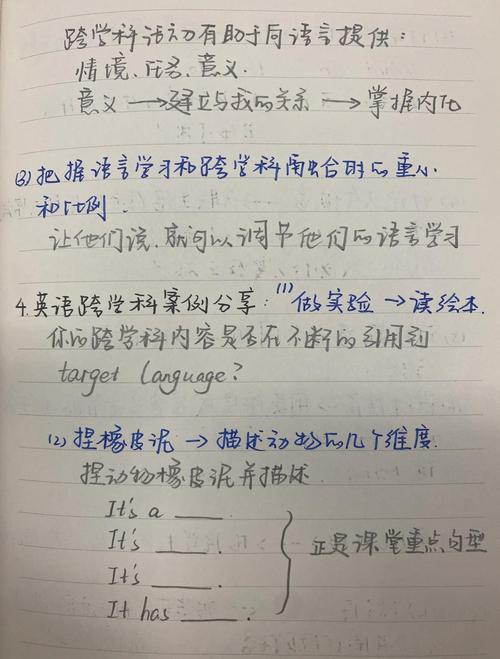 跨学科活动有助于同语言提供：
情境、任务、意义.
意义 → 建立与我的关系 → 掌握内化
(3) 把握语言学习和跨学科融合时的重心
和比例.
让他们说, 就可以调节他们的语言学习
4. 英语跨学科案例分享: (1) 做实验 → 读绘本.
你的跨学科内容是否在不断的引用到
target language?
(2) 捏橡皮泥 → 描述动物的几个维度.
捏动物橡皮泥并描述.
It's a ____.
It's ____.
It's ____.
It has ____.
正是课堂重点句型